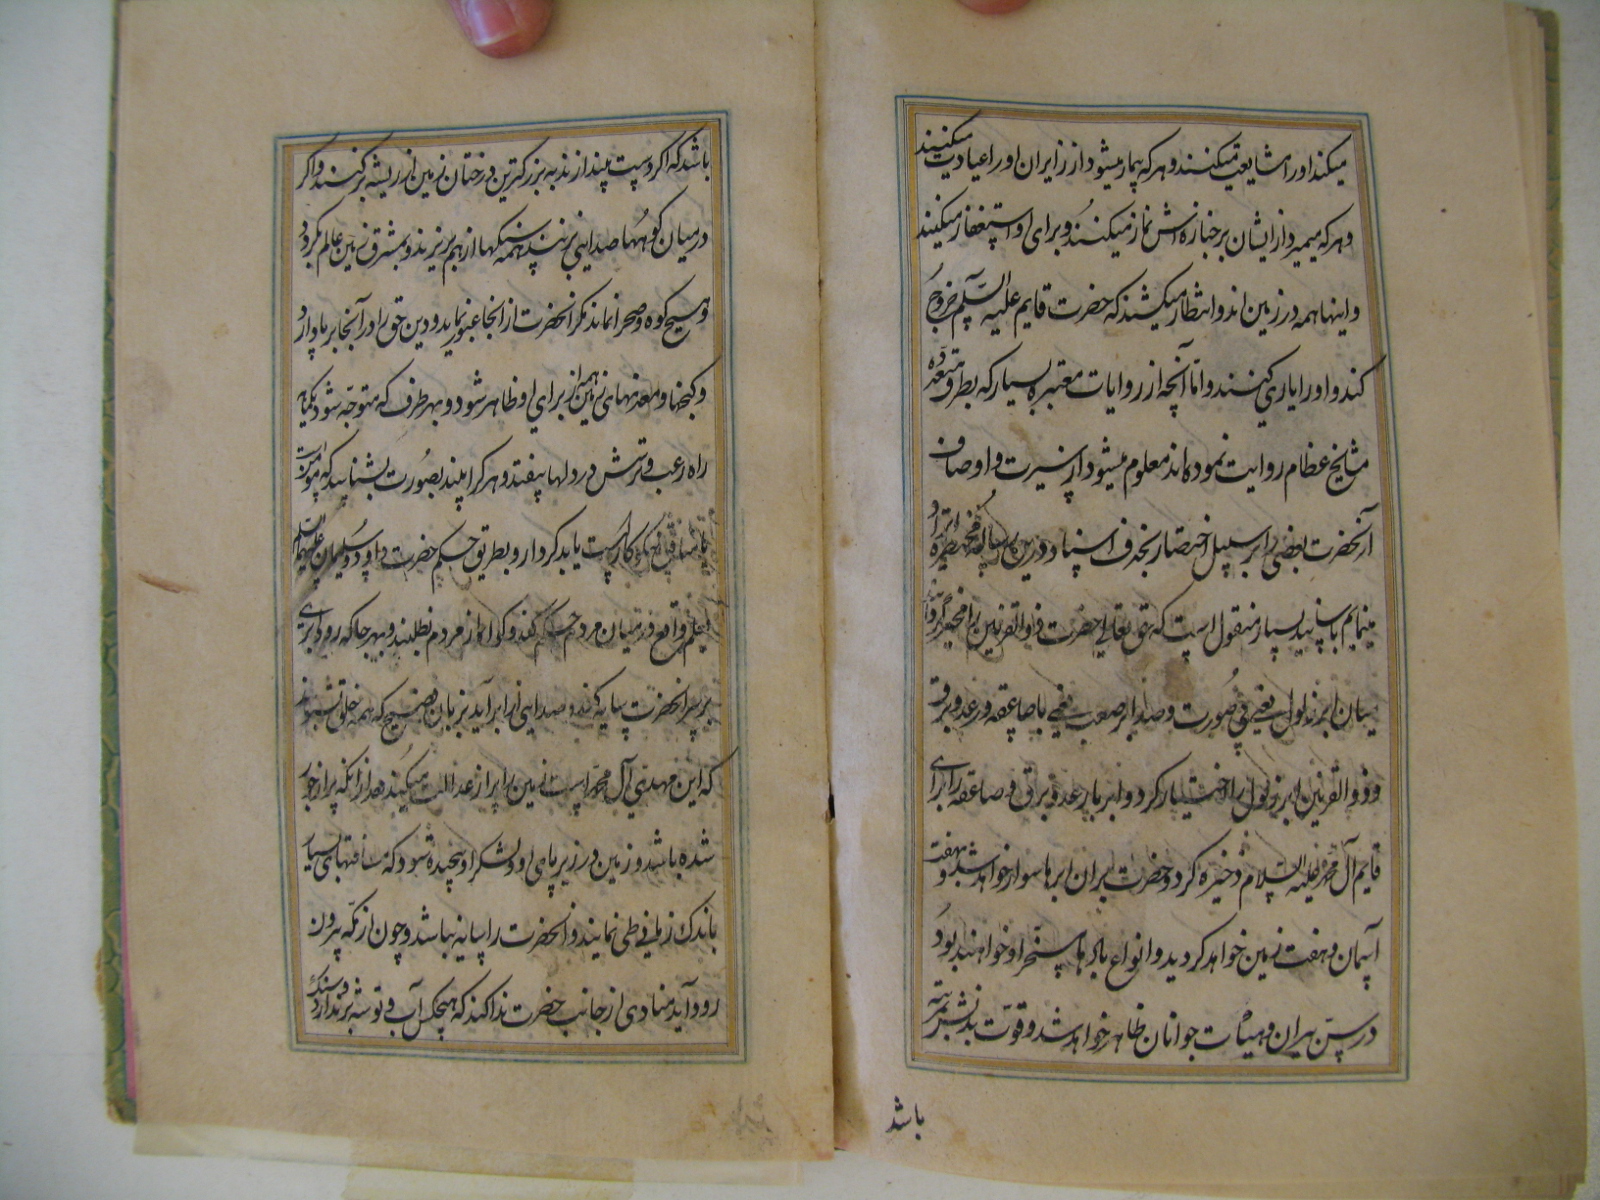 میکند اورا مشایعت میکنند و هر که بیمار میشود از زایران او را عیادت میکنند
و هر که میمیرد از ایشان بر جنازه‌اش نماز میکنند و برای او استغفار میکنند
و اینها همه در زمین‌اند و انتظار میکشند که حضرت قایم علیه السلام خروج
کند و او را یاری کنند و اما آنچه از روایات معتبره بسیار که بطرق متعدده
مشایخ عظام روایت نموده‌اند معلوم میشود از سیرت و اوصاف
آنحضرت بعضی را بر سبیل اختصار بحذف اسناد درین رساله مختصره ایراد
مینمایم باسانید بسیار منقول است که حق تعالی حضرت ذو القرنین را مخیر گردانید
میان ابر ذلول یعنی و صدا و ابر صعب یعنی با صاعقه و رعد و برق
و ذو القرنین ابر ذلول را اختیار کرد و ابر با رعد و برق و صاعقه را برای
قایم آل محمد علیه السلام ذخیره کرد و حضرت بران ابرها سوار خواهد شد و بهفت
آسمان و هفت زمین خواهد گردید و انواع بادها مسخر او خواهند بود
در سن پیران و هیئات جوانان ظاهر خواهد شد و قوت بدنش بمرتبه
باشد
باشد که اگر دست بیندازند به بزرگترین درختان زمین از ریشه برکنند و اگر
در میان کوهها صدایی بزند همه سنگها از هم بریزند و بمشرق زمین عالم بگردد
و هیچ کوه و صحرا نماند مگر آنحضرت از آنجا عبور نماید و دین حق را در آنجا بر پا دارد
و گنجها و معدنهای زمین همه از برای او ظاهر شود و بهر طرف که متوجه شود یکماهه
راه رعب و ترسش در دلها بیفتد و هر کرا بیند بصورت بشناسد که مؤمنست
یا منافق نیکوکار است یا بدکردار و بطریق حکم حضرت داود و سلیمان علیهما السلام
بعلم واقع در میان مردم حکم کند و گواه از مردم نطلبند و بهر جا که رود ابری
بر سر آنحضرت سایه کند و صدایی از ابر آید بزبان فصیح که همه خلق بشنوند
که این مهدی آل محمد است زمین را پر از عدالت میکند بعد از انکه پر از جور
شده باشد و زمین در زیر پای او و لشکر او پیچیده شود که مسافتهای بسیار
باندک زمانی طی نمایند و آنحضرت را سایه نباشد و چون از مکه بیرون
رود آید منادی از جانب حضرت ندا کند که هیچکس آب و توشه برندارد و سنگ